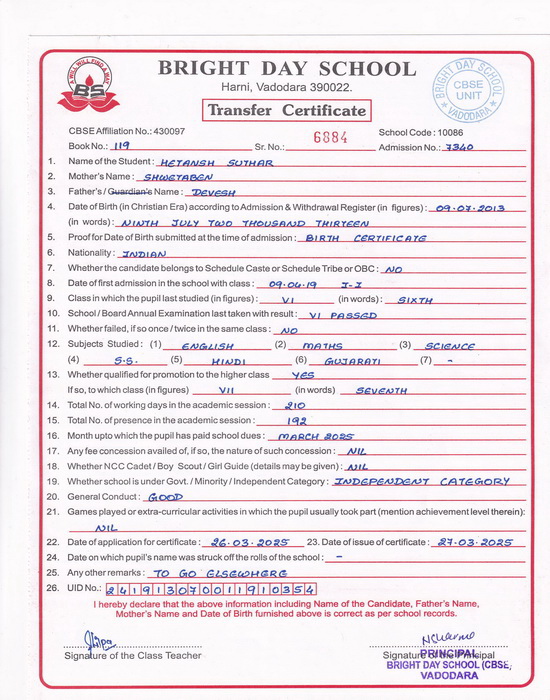 A WILL WILL FIND A WAY
BS
BRIGHT DAY SCHOOL
Harni, Vadodara 390022.
Transfer Certificate
BRIGHT DAY SCHOOL
CBSE
UNIT
VADODARA
CBSE Affiliation No.: 430097 6884 School Code : 10086
Book No.: 119 Sr. No.: Admission No.: 7340
1. Name of the Student : HETANSH SUTHAR
2. Mother's Name : SHWETABEN
3. Father's / Guardian's Name : DEVESH
4. Date of Birth (in Christian Era) according to Admission & Withdrawal Register (in figures) : 09.07.2013
(in words) : NINTH JULY TWO THOUSAND THIRTEEN
5. Proof for Date of Birth submitted at the time of admission : BIRTH CERTIFICATE
6. Nationality : INDIAN
7. Whether the candidate belongs to Schedule Caste or Schedule Tribe or OBC : NO
8. Date of first admission in the school with class : 09.04.19 I-I
9. Class in which the pupil last studied (in figures) : VI (in words) : SIXTH
10. School / Board Annual Examination last taken with result : VI PASSED
11. Whether failed, if so once / twice in the same class : NO
12. Subjects Studied : (1) ENGLISH (2) MATHS (3) SCIENCE
(4) S.S. (5) HINDI (6) GUJARATI (7) -
13. Whether qualified for promotion to the higher class YES
If so, to which class (in figures) VII (in words) SEVENTH
14. Total No. of working days in the academic session : 210
15. Total No. of presence in the academic session : 192
16. Month upto which the pupil has paid school dues : MARCH 2025
17. Any fee concession availed of, if so, the nature of such concession : NIL
18. Whether NCC Cadet / Boy Scout / Girl Guide (details may be given) : NIL
19. Whether school is under Govt. / Minority / Independent Category : INDEPENDENT CATEGORY
20. General Conduct : GOOD
21. Games played or extra-curricular activities in which the pupil usually took part (mention achievement level therein):
NIL
22. Date of application for certificate : 26.03.2025 23. Date of issue of certificate : 27.03.2025
24. Date on which pupil's name was struck off the rolls of the school : -
25. Any other remarks : TO GO ELSEWHERE
26. UID No.: 241913070011910354
I hereby declare that the above information including Name of the Candidate, Father's Name,
Mother's Name and Date of Birth furnished above is correct as per school records.
Signature of the Class Teacher Signature of the Principal
PRINCIPAL
BRIGHT DAY SCHOOL (CBSE,
VADODARA